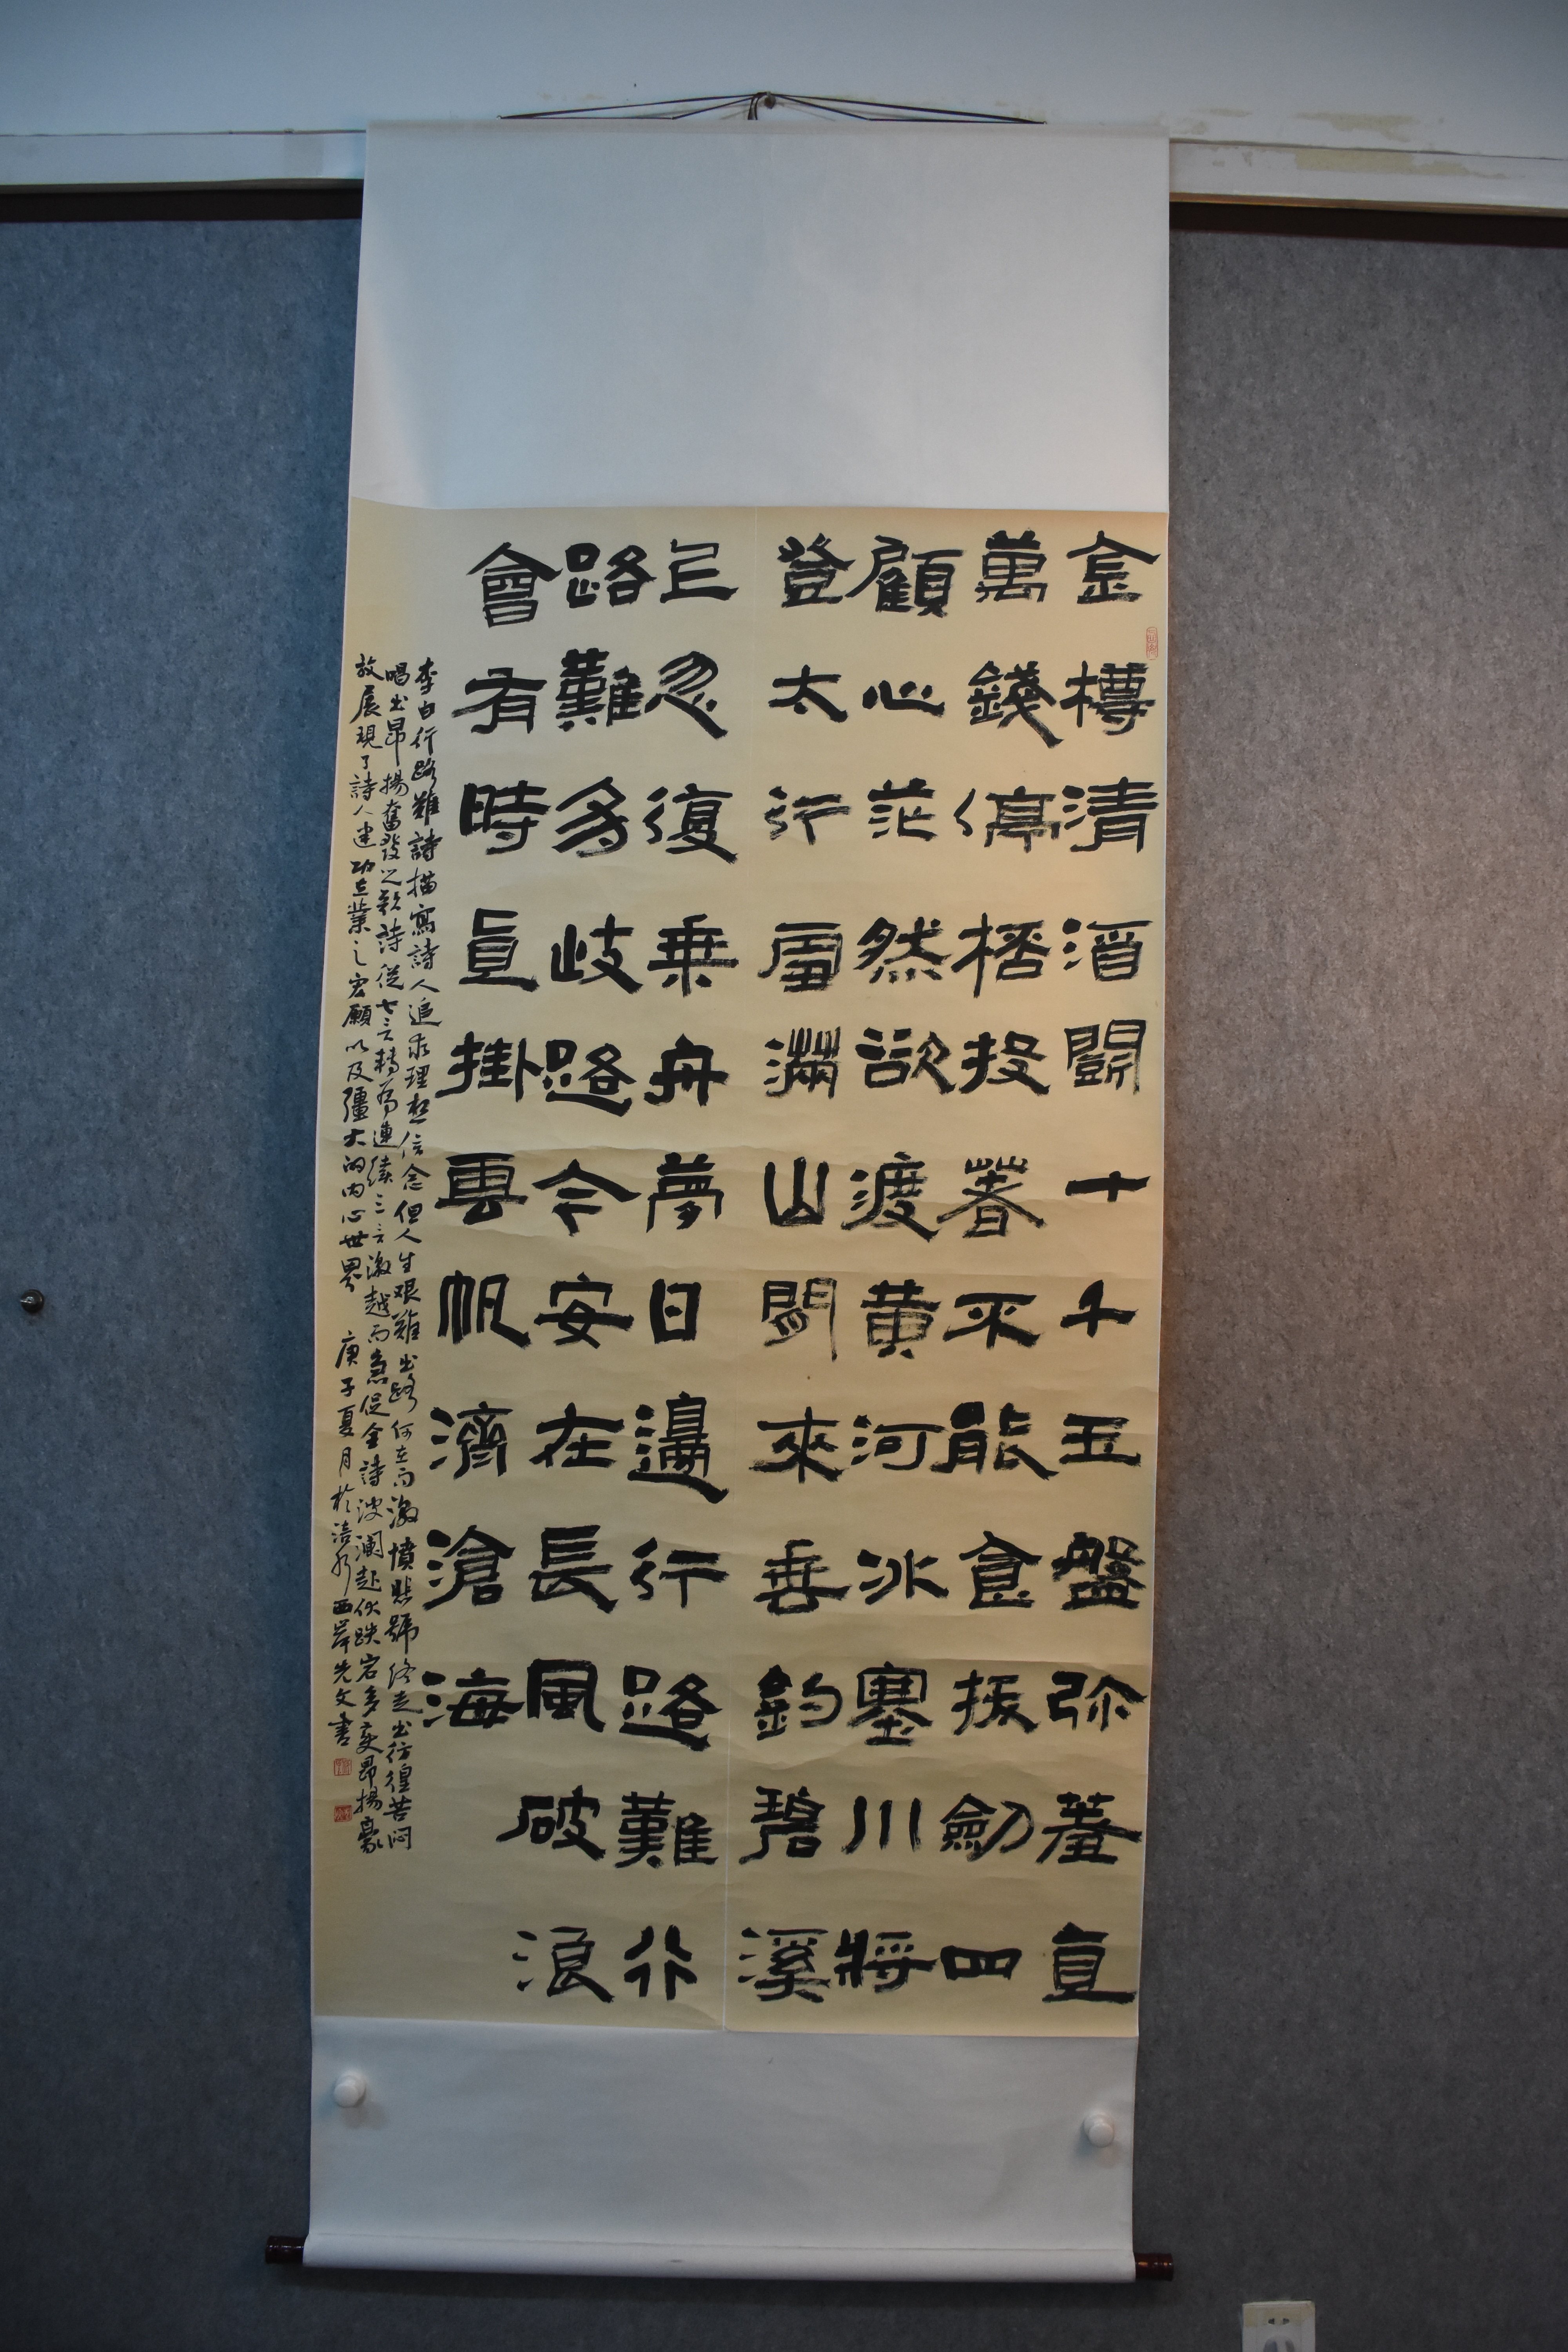 金樽清酒鬭十千玉盤珎羞直
萬錢停桮投箸不能食拔劍四
顧心茫然欲渡黃河冰塞川將
登太行雪滿山閒來垂釣碧溪
上忽復乗舟夢日邊行路難行
路難多歧路今安在長風破浪
會有時直掛雲帆濟滄海
李白行路難詩描寫詩人追求理想信念但人生艰難出路何在而激憤悲號終走出彷徨苦闷
唱出昂揚奮發之歌詩從七言轉爲連續三言激越而急促全詩波澜起伏跌宕多変昂揚豪
放展現了詩人建功立業之宏願以及彊大的内心世界 庚子夏月於涪水西岸先文書